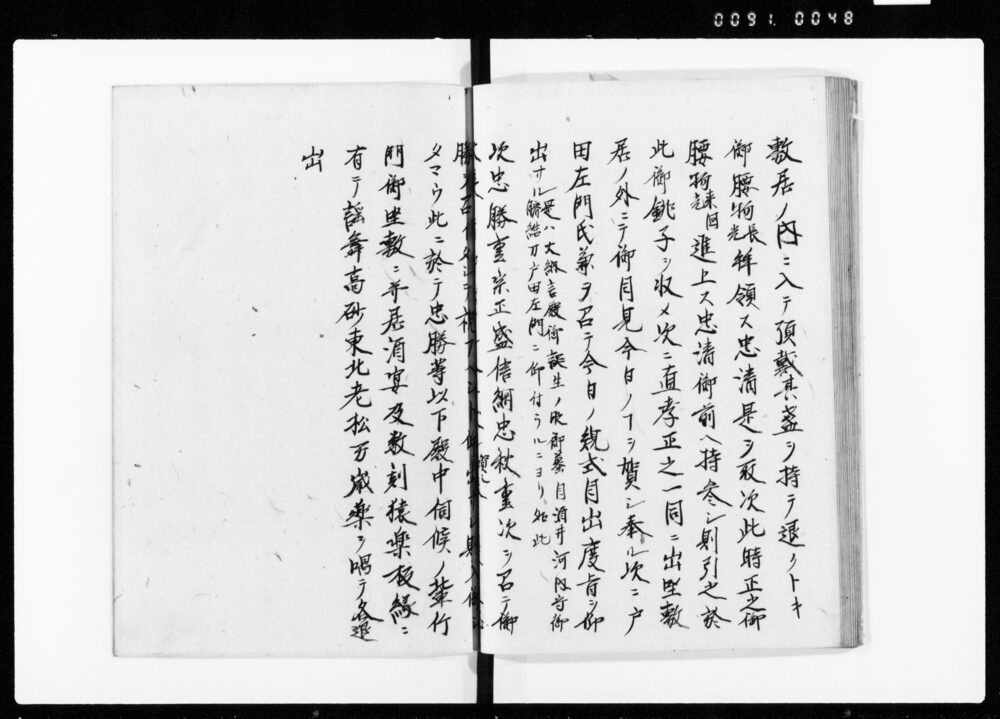 0091.0048
敷居ノ内ニ入テ頂戴其盞ヲ持テ退クトキ
御腰物長光拝領ス忠清是ヲ取次此時正之御
腰物来国光進上ス忠清御前ヘ持参シ則引之於
此御銚子ヲ収メ次ニ直孝正之一同ニ出座敷
居ノ外ニテ御目見今日ノヿヲ賀シ奉ル次ニ戸
田左門氏兼ヲ召テ今日ノ規式目出度旨ヲ仰
出サル是ハ大納言殿御誕生ノ時御蟇目酒井河内守御
勝結万戸田左門ニ仰付ラルニヨリ如此
次忠勝重宗正盛信綱忠秋重次ヲ召テ御
タマウ此ニ於テ忠勝等以下殿中伺候ノ輩竹
門御座敷ニ并居酒宴及数刻猿楽板縁ニ
有テ謡舞高砂東北老松万歳楽ヲ唱テ各退
出